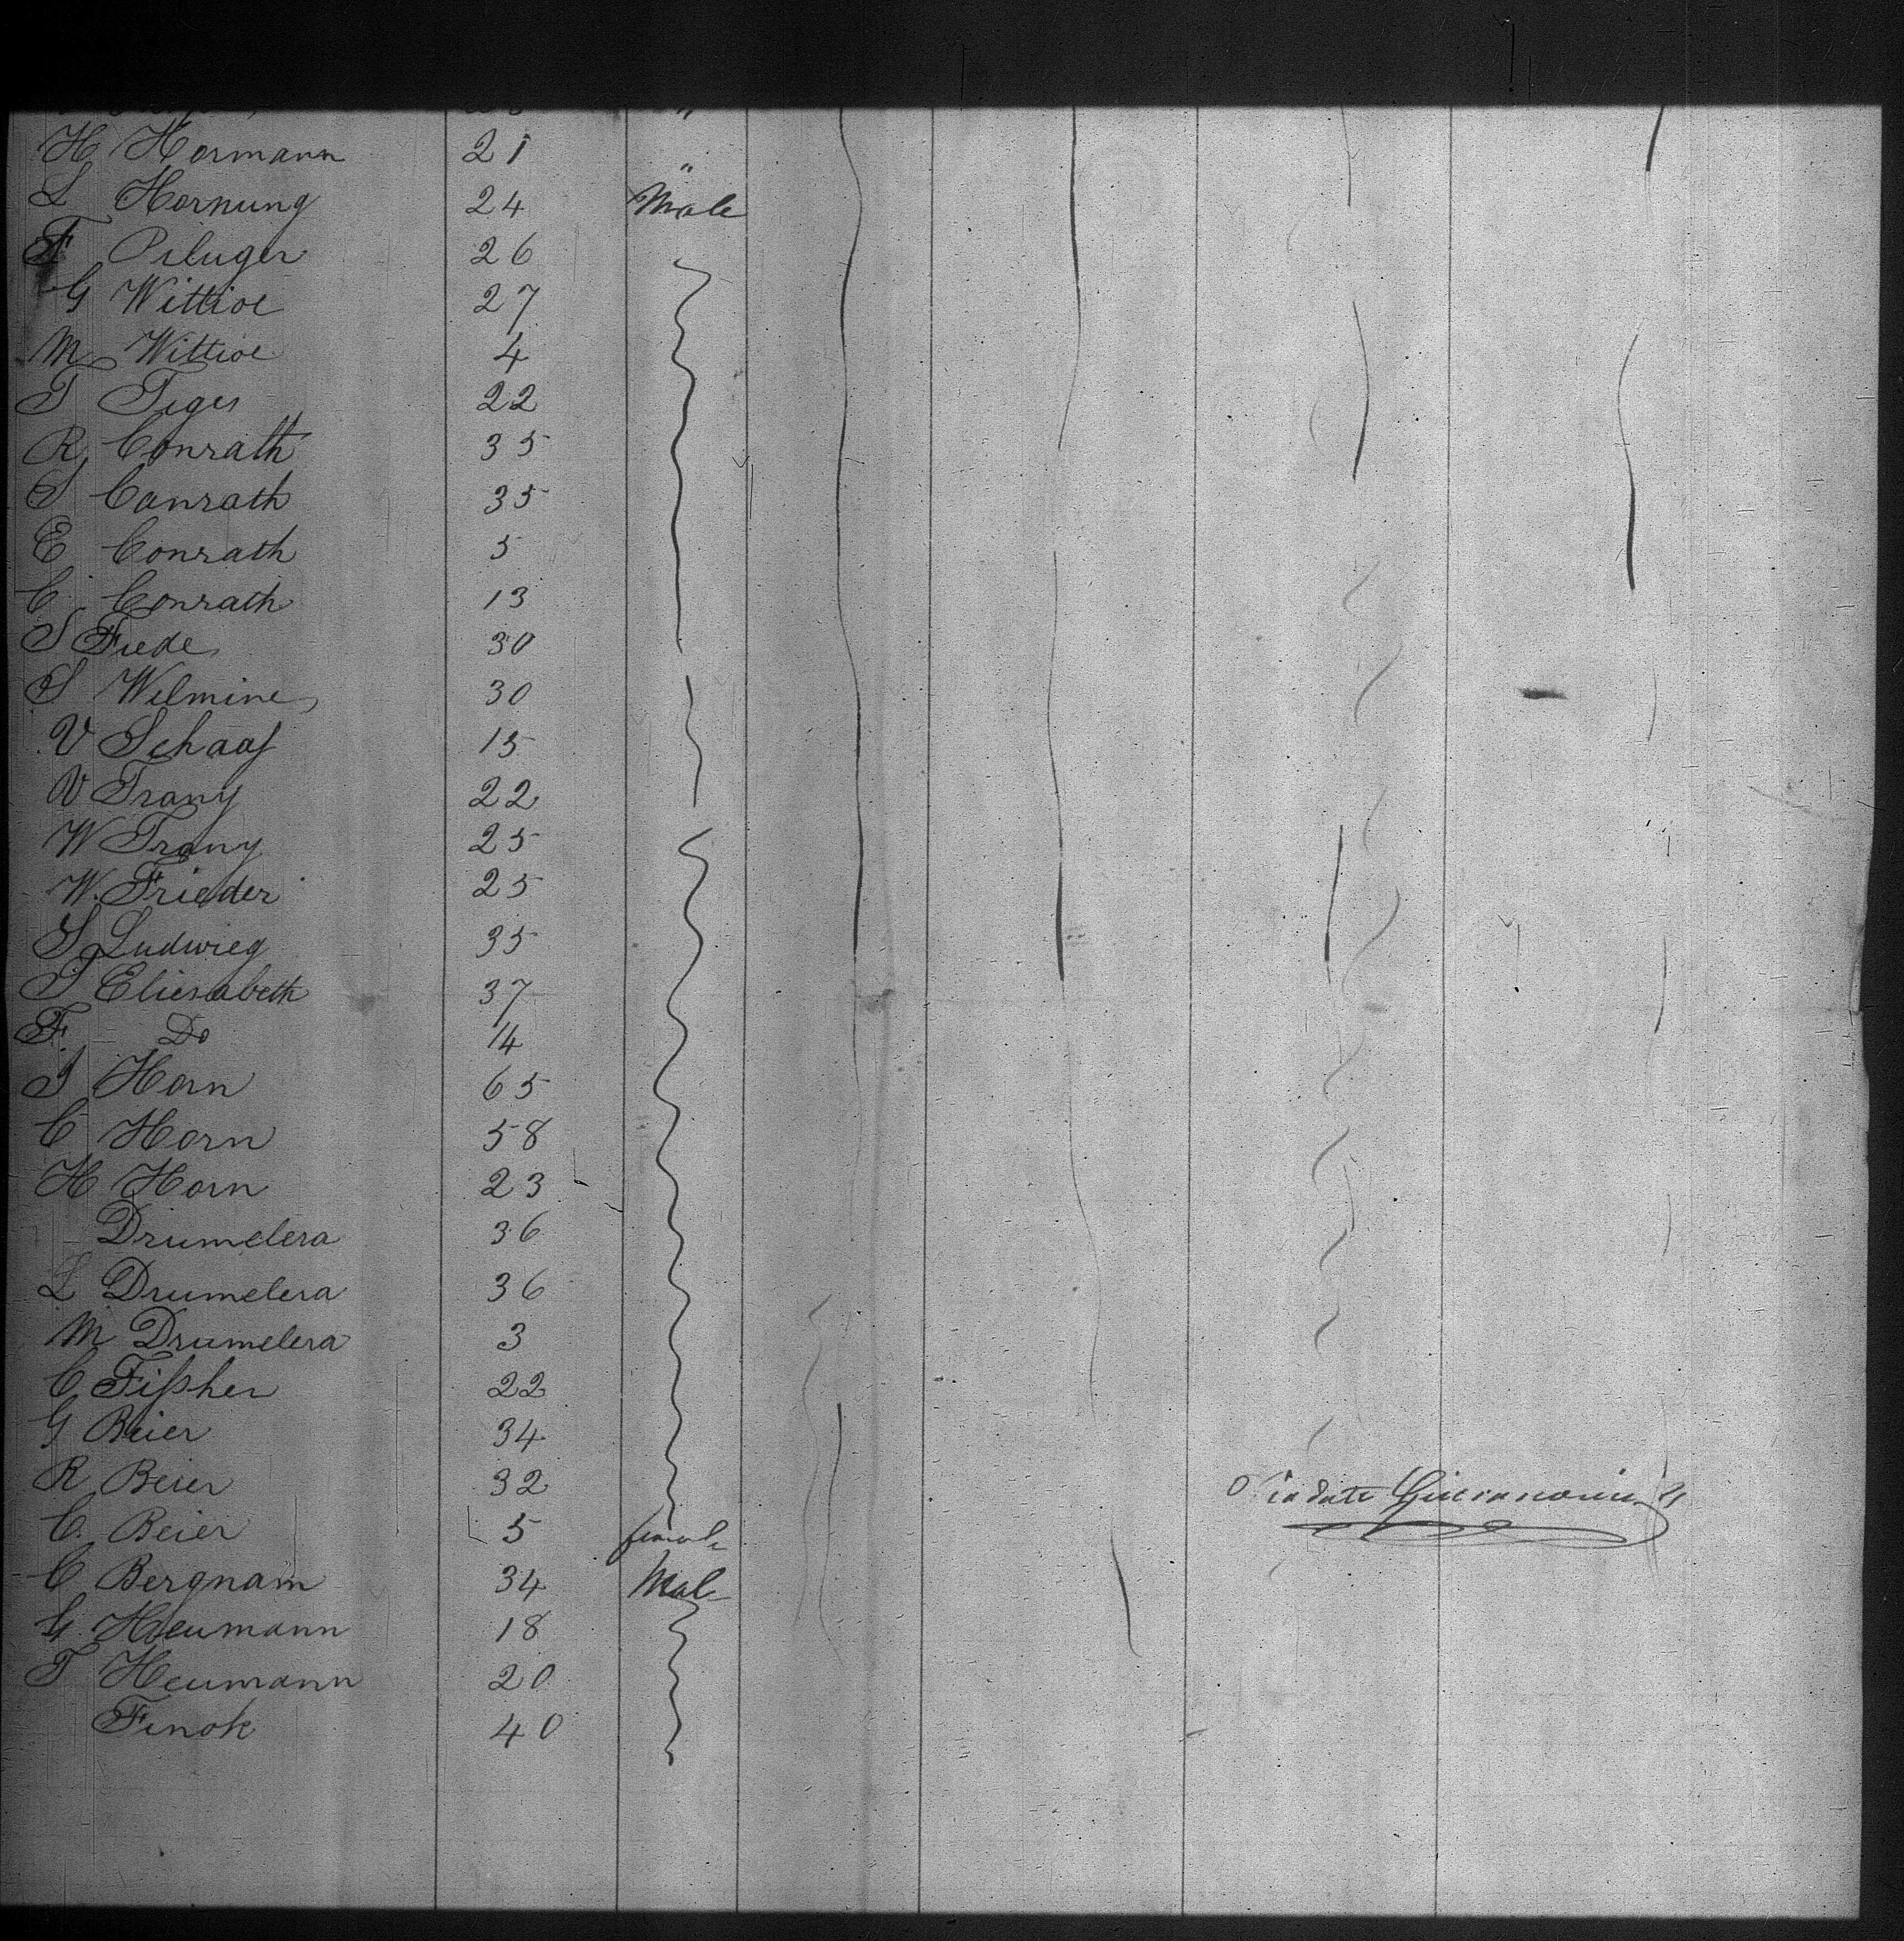 H Hormann 21 "
L Hornung 24 Male
F Piluger 26
G Wittioe 27
M Wittioe 4
T Tiges 22
R Conrath 35
S Conrath 35
E Conrath 5
C Conrath 13
S Friede 30
S Welmine 30
V Schaaf 15
V Frany 22
W Frany 25
W. Frieder 25
S Ludwieg 35
S Eliesabeth 37
F. Do 14
J Horn 65
C Horn 58
H Horn 23
Drumelera 36
L Drumelera 36
M Drumelera 3
C Fißher 22
G Beier 34
R Beier 32
C. Beier 5 female
C Bergnam 34 Male
G. Heumann 18
T Heumann 20
Finok 40